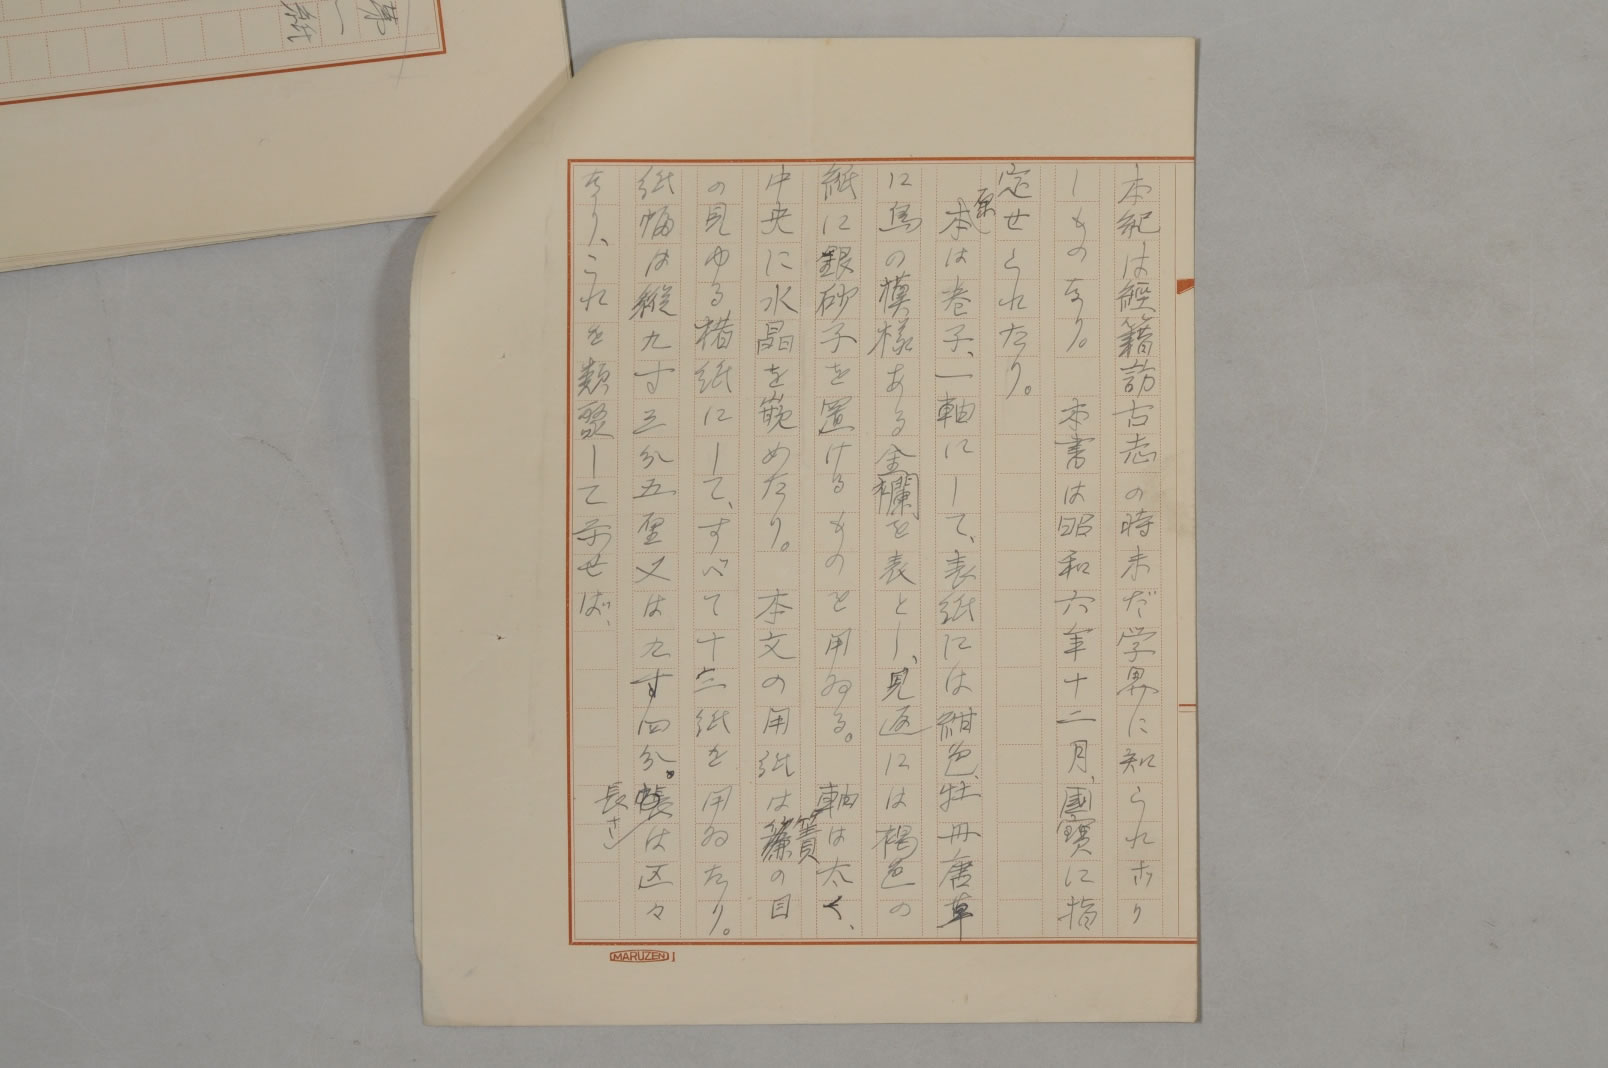 本紀は經籍訪古志の時未だ学界に知られざり
しものなり。 本書は昭和六年十二月、國寶に指
定せられたり。
原本は巻子、一軸にして、表紙には紺色、牡丹唐草
に鳥の模樣ある金襴を表とし、見返には褐色の
紙に銀砂子を置けるものを用ゐる。 軸は太く、
中央に水晶を嵌めたり。 本文の用紙は簾の目
の見ゆる楮紙にして、すべて十三紙を用ゐたり。
紙幅は縱九寸三分五厘又は九寸四分。長さは区々
なり、これを類聚して示せば、
MARUZEN